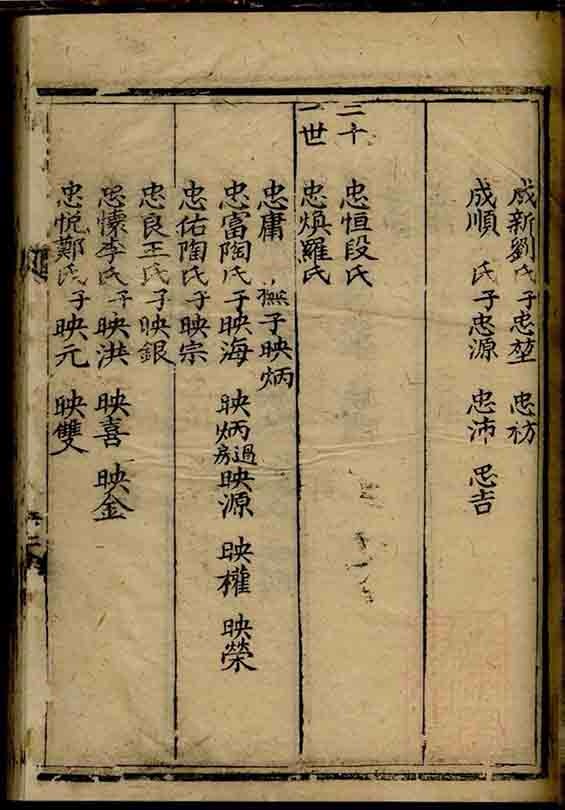 成新劉氏子忠堃 忠祊
成順 氏子忠源 忠沛 忠吉
二十一世
忠恒段氏
忠煥羅氏
忠庸 撫子映炳
忠富陶氏子映海 映炳過房 映源 映權 映榮
忠佑陶氏子映宗
忠良王氏子映銀
忠愫李氏子映洪 映喜 映金
忠悦鄭氏子映元 映雙